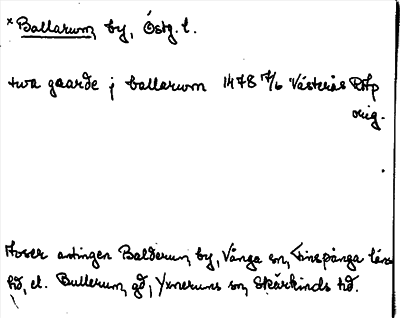 * Ballarum, by, Östg. l.
twa gaarde j ballarum 1478 17/6 Västerås RAp
orig.
Avser antingen Balderum, by, Vånga sn, Finspånga läns
hd, el. Bullerum, gd, Yxnerums sn, Skärkinds hd.